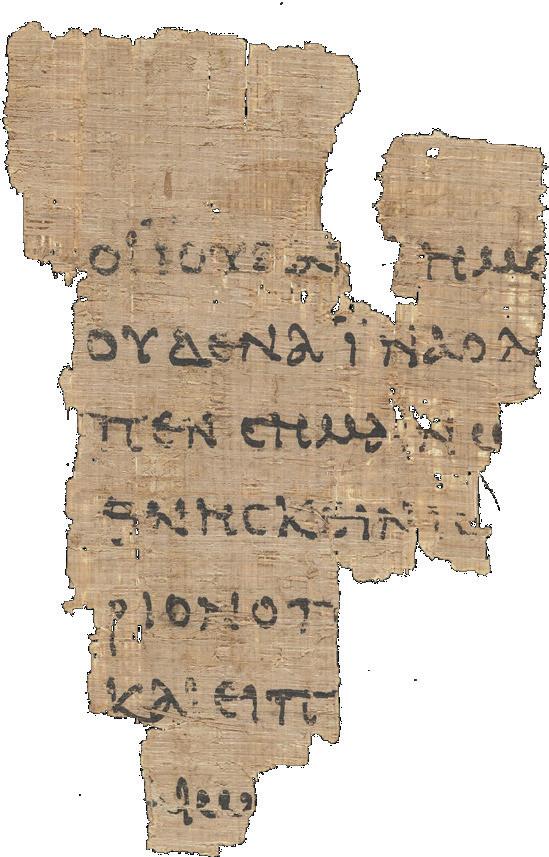 ΟΙ ΪΟΥΔΑΙ ΗΜΕ
ΟΥΔΕΝΑ ΪΝΑ Ο Λ
ΠΕΝ ΣΗΜΑΙΝΩ
ΘΝΗΣΚΕΙΝ ΙΣ
ΡΙΟΝ Ο Π
ΚΑΙ ΕΙΠ
ΑΙΩ